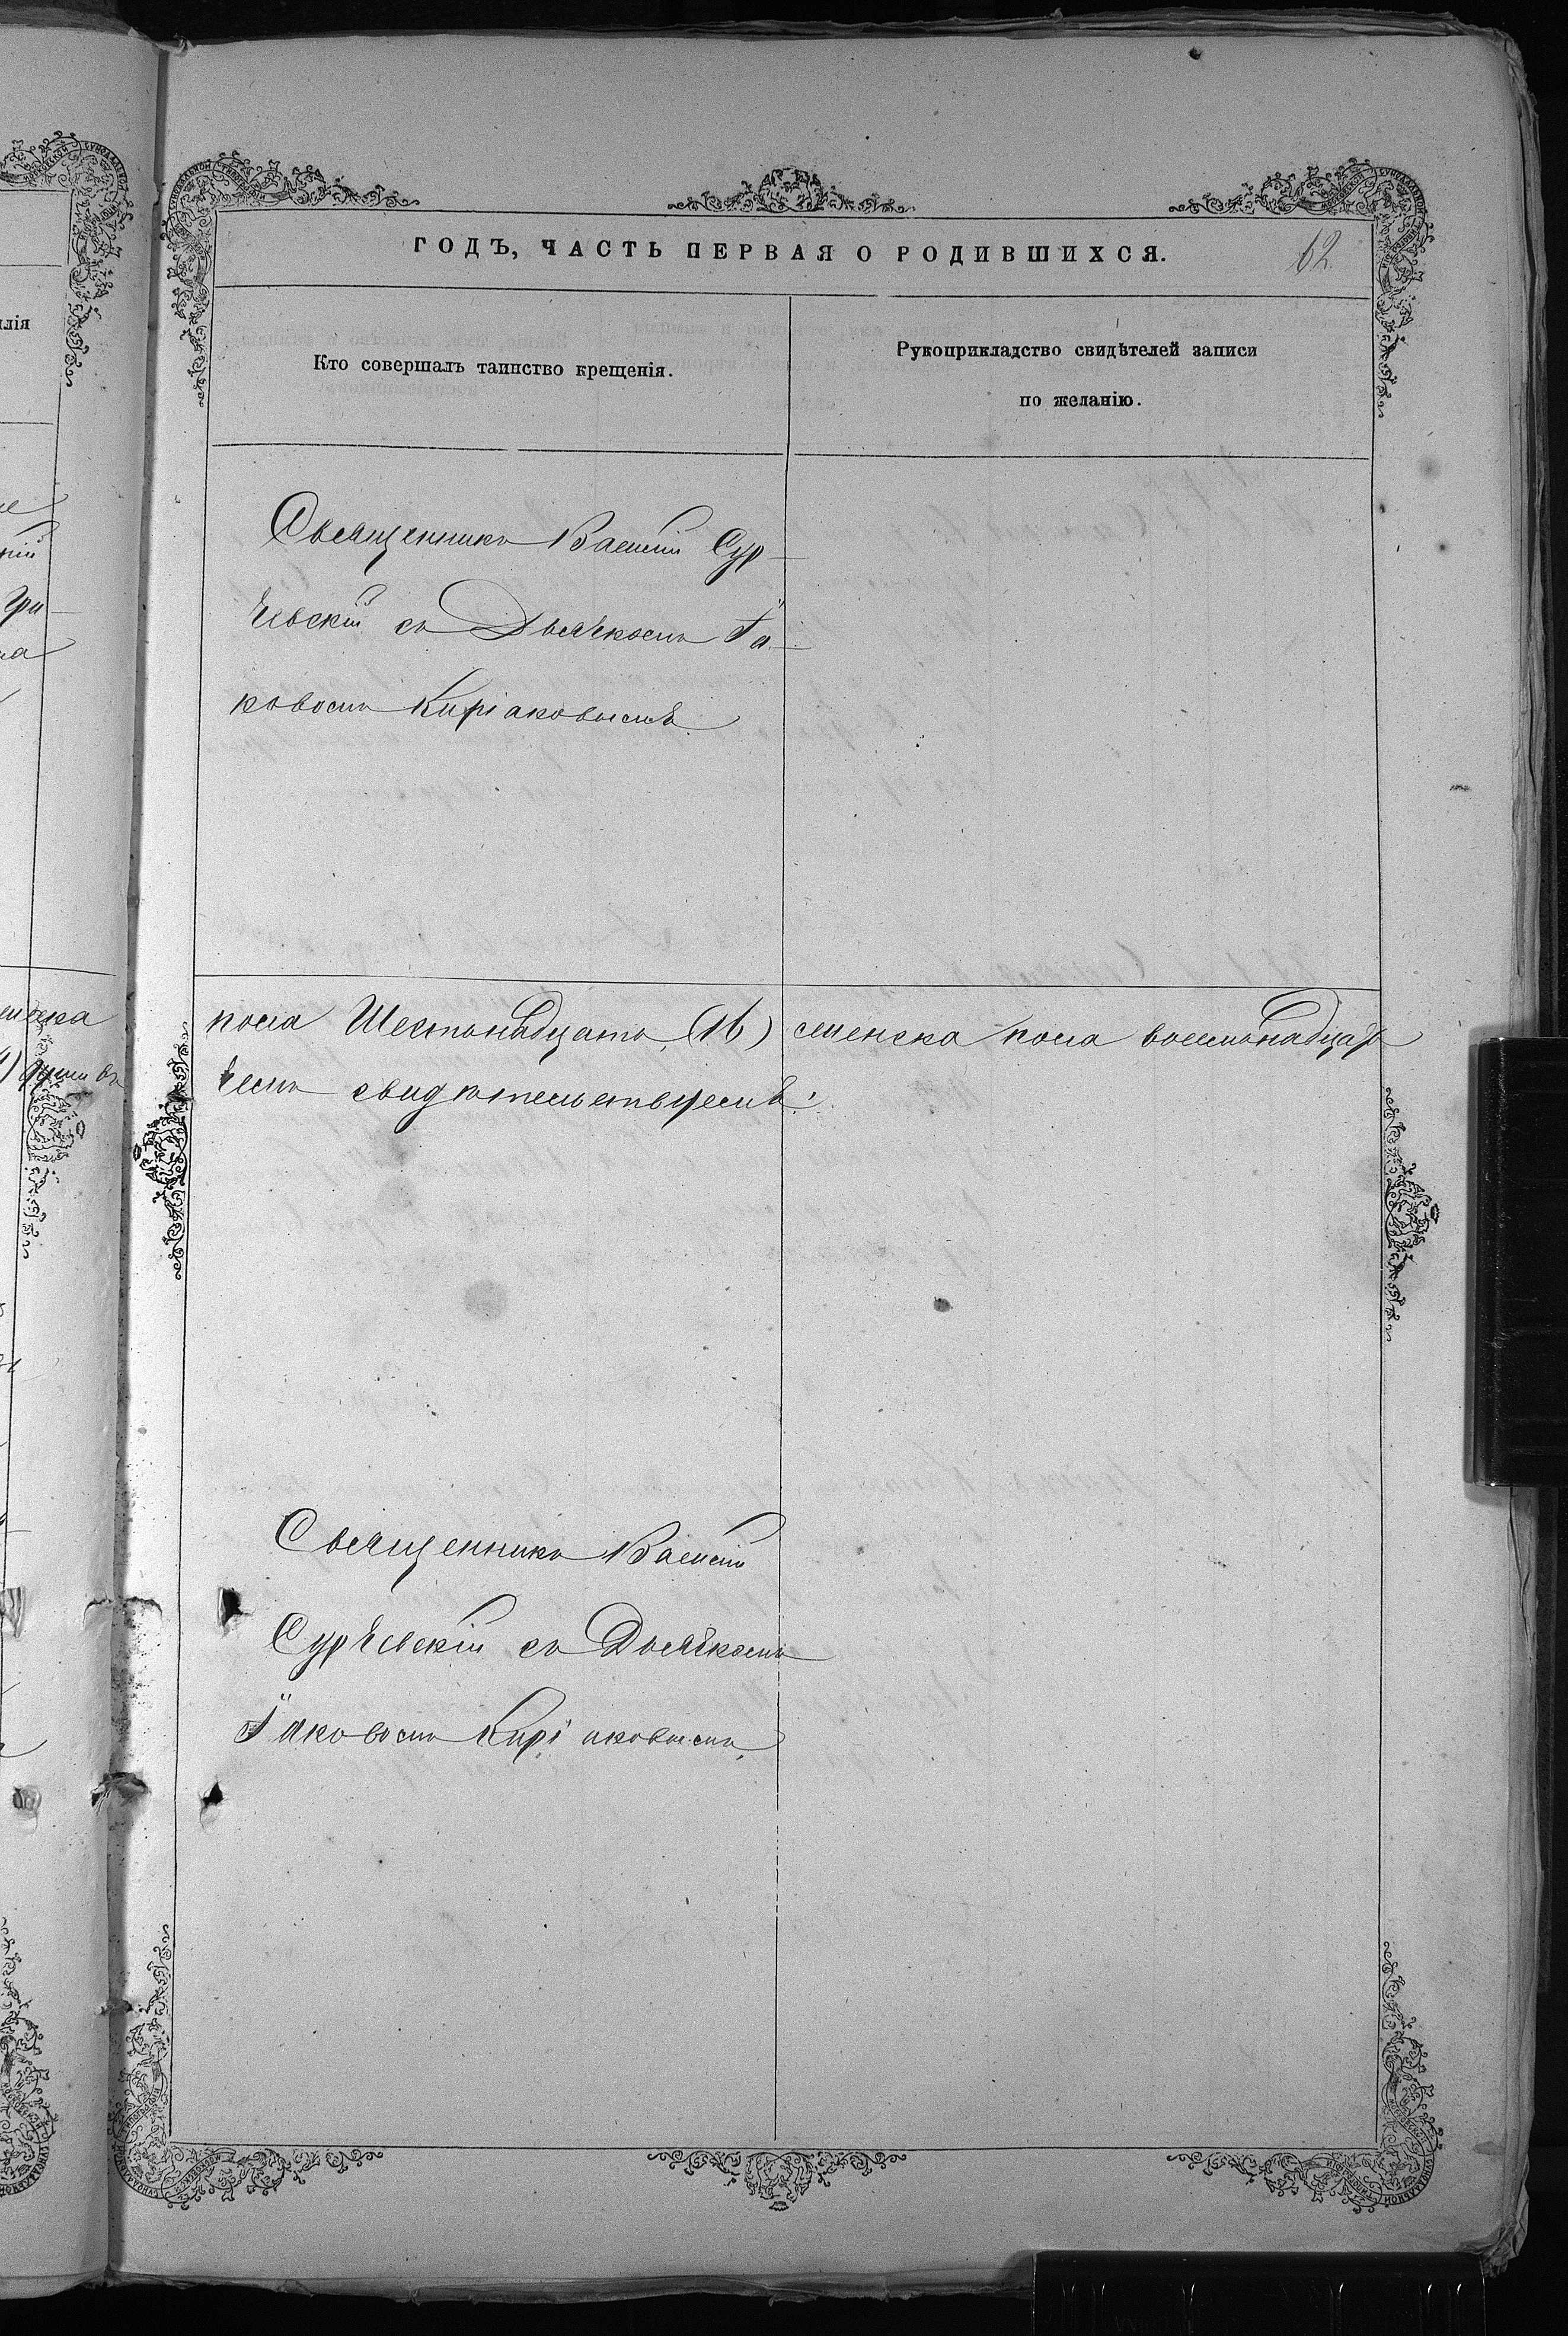 ГОДЪ, ЧАСТЬ ПЕРВАЯ О РОДИВШИХСЯ.
62.
Кто совершалъ таинство крещенія.
Рукоприкладство свидѣтелей записи
по желанію.
Священникъ Василій Сур-
ѣевскій съ Дьячкомъ Іа-
ковомъ Киріаковымъ
пола Шестьнадцать (16) женска пола восемьнадца
емъ свидѣтельствуемъ:
Священникъ Василій
Сурѣевскій съ Дьячкомъ
Іаковомъ Киріаковымъ.